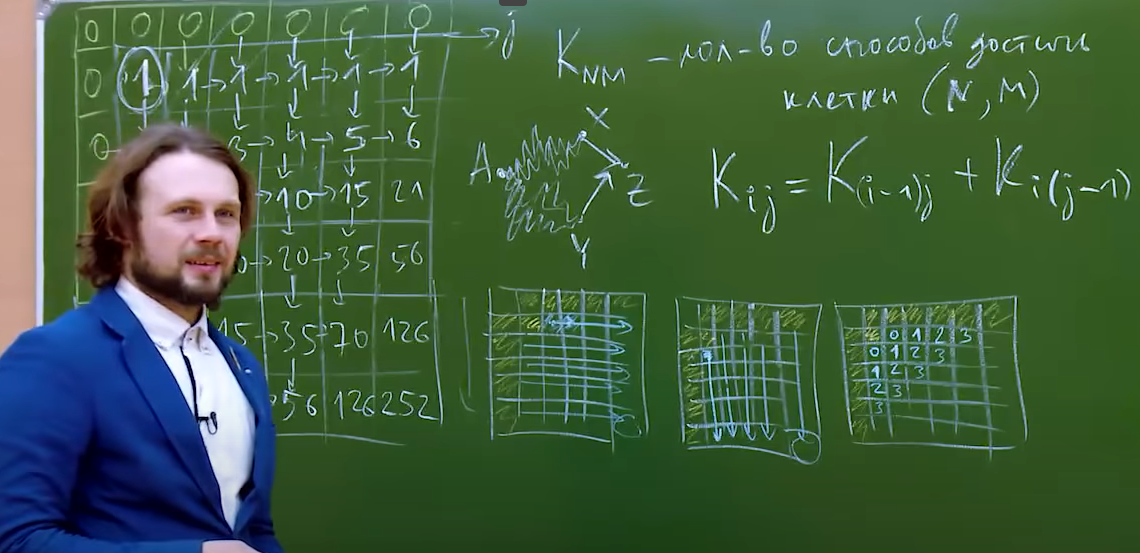 0 0 0 0 0 0 0 j
0 1 1 1 1 1 1
0 3 4 5 6
10 15 21
0 20 35 56
15 35 70 126
56 126 252
K_{NM} – кол-во способов достичь
клетки (N, M)
X
A
Z
Y
K_{ij} = K_{(i-1)j} + K_{i(j-1)}
0 1 2 3
0 1 2 3
1 2 3
2 3
3